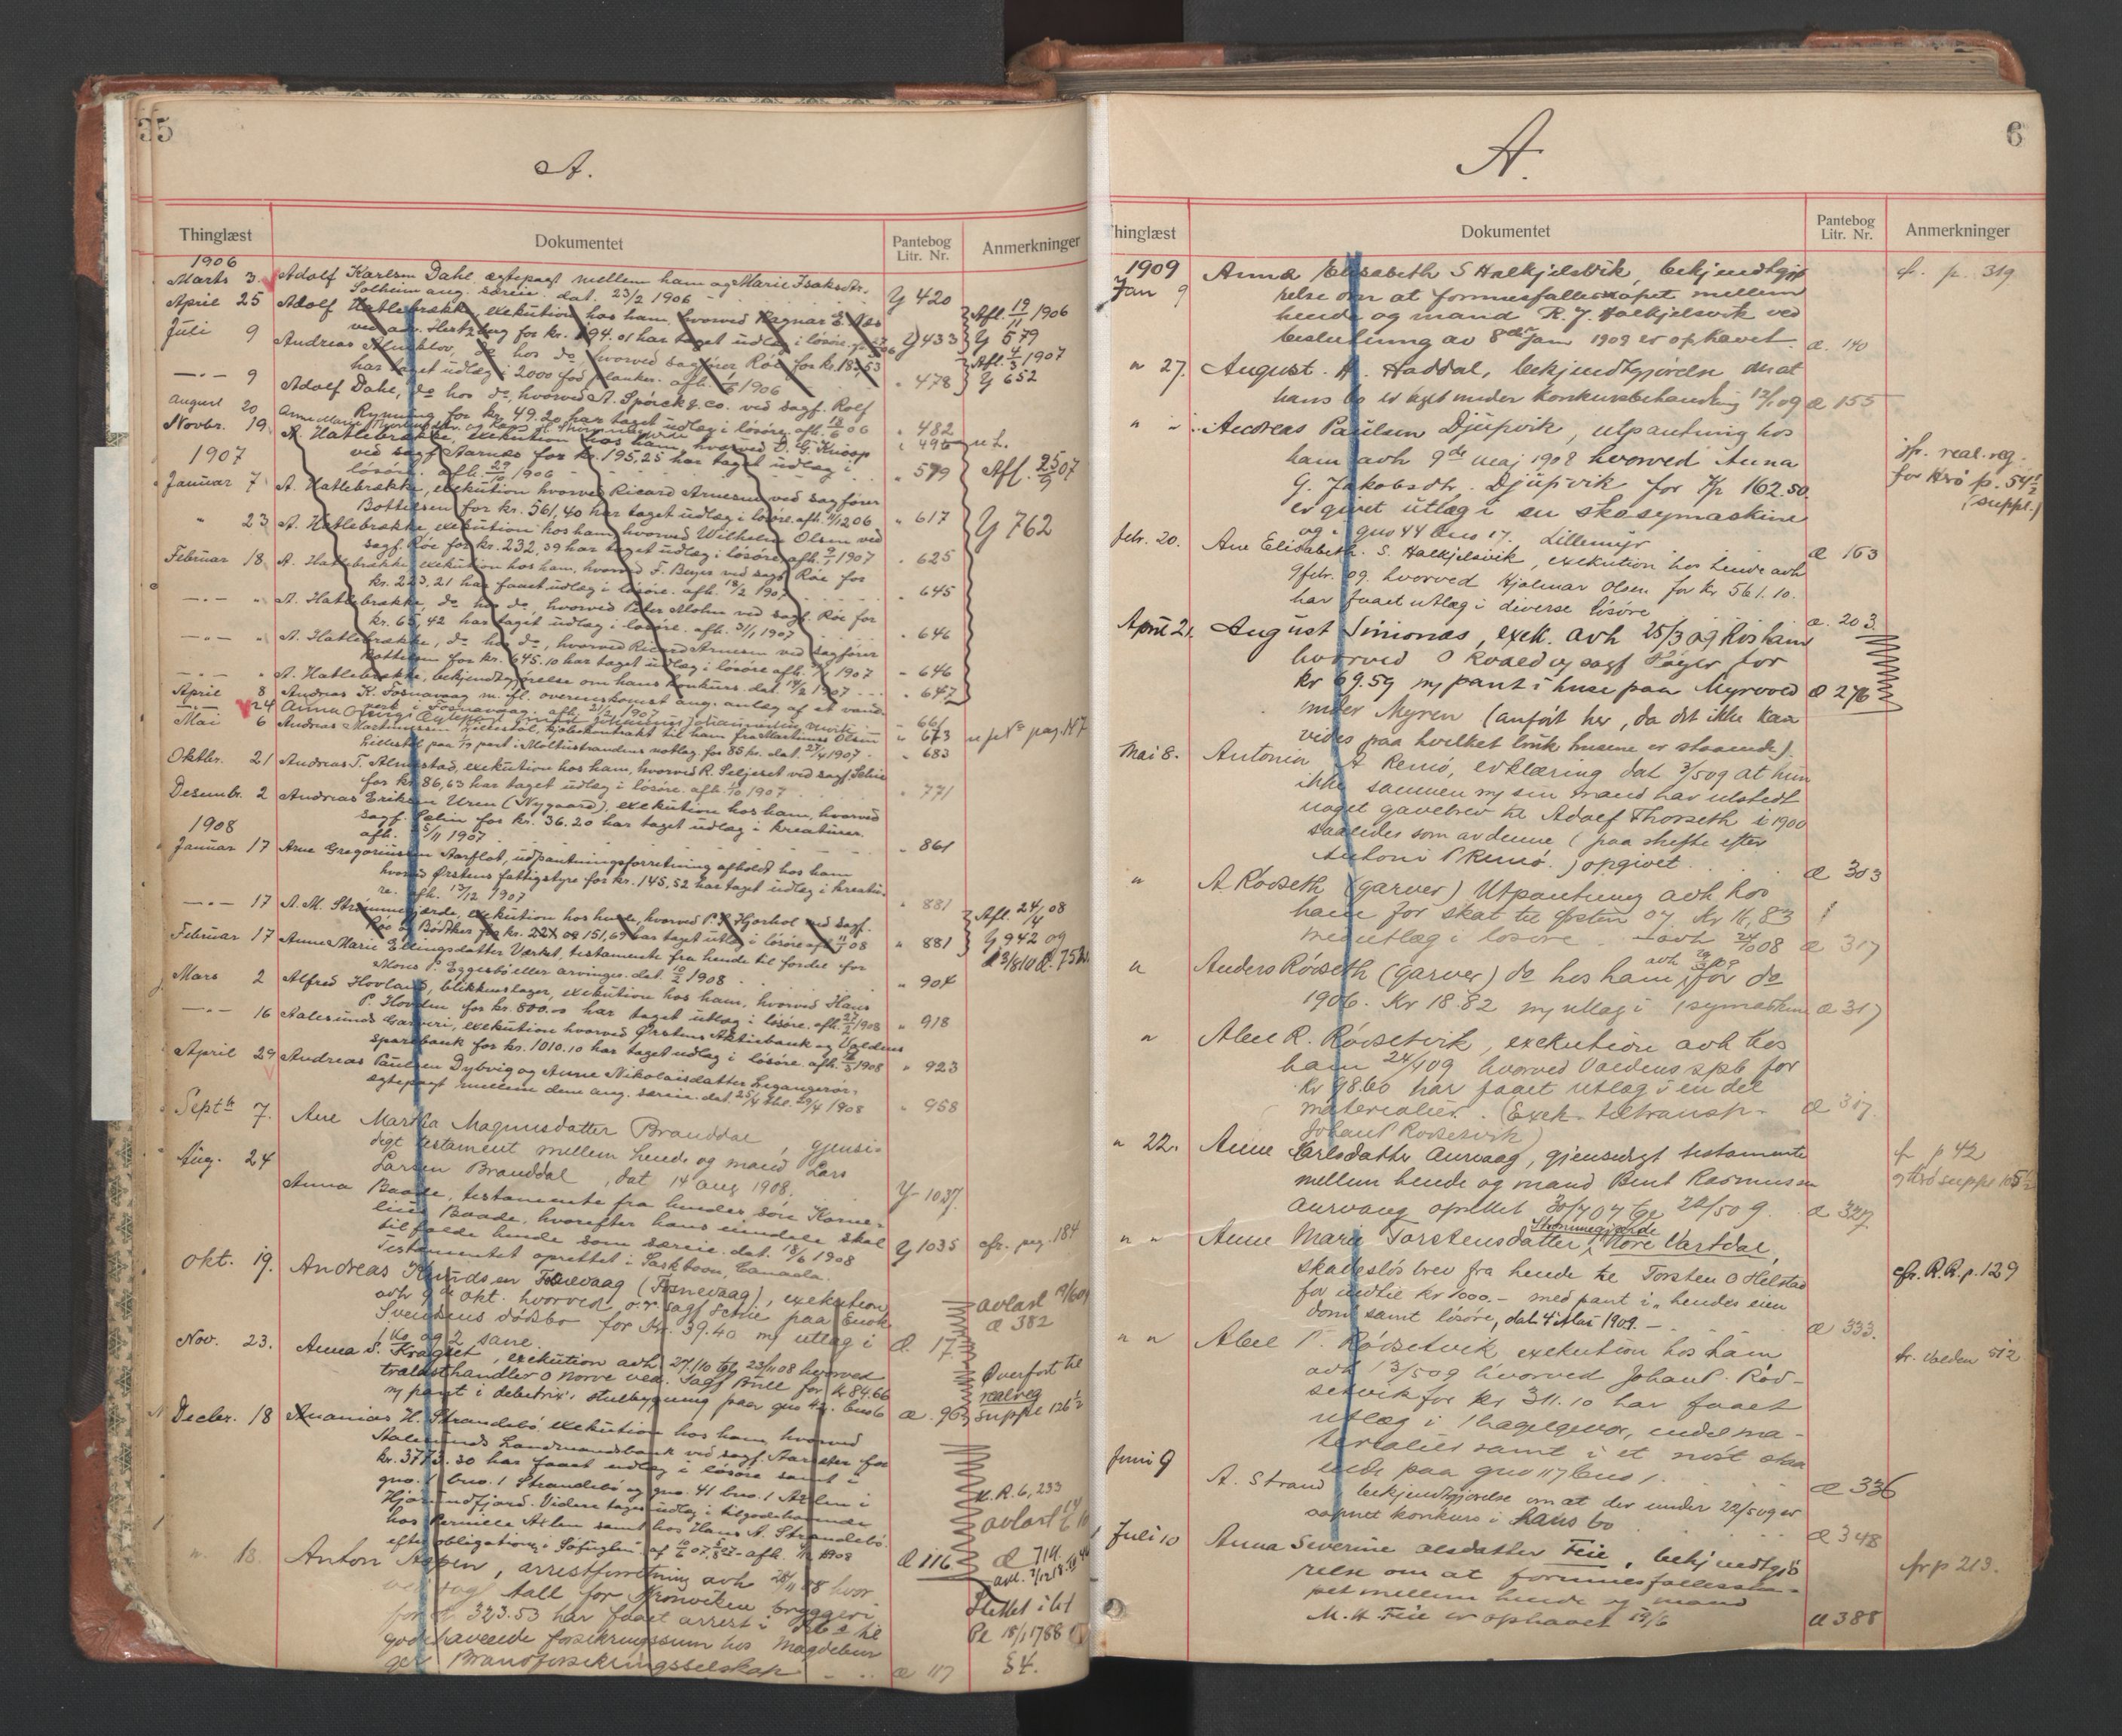 35
A.
Thinglæst Dokumentet Pantebog Litr. Nr. Anmerkninger
1906
Marts 3. Adolf Karlsen Dahl ægtepagt mellem ham og Marie Isaksdtr.
Solheim ang. særeie. dat. 23/2 1906 Y 420
April 25 Adolf Hatlebrække, exekution hos ham, hvorved Ragnar E. Næs Afl. 19/11 1906
ved adv. Hertzberg for kr. 194.01 har taget udlæg i løsøre. Y 433 Y 579
Juli 9 Andreas Almklov, do hos do, hvorved sagfører Röe for kr. 183,53 Afl. 4/3 1907
har taget udlæg i 2000 fod planker. afh. 1/6 1906 " 478 Y 652
—"— 9 Adolf Dahl, do hos do, hvorved A. Spörck & co. ved sagf. Rolf
Rynning for kr. 49.20 har taget udlæg i løsøre. afh. 18/6 06 " 482
August 20 " 495
Novbr. 19 A. Hatlebrække, exekution hos ham hvorved D. G. Knoop
ved sagf. Aarnæs for kr. 195,25 har taget udlæg i
løsøre. afh. 29/10 1906 " 579 Afl. 25/9 07
1907
Januar 7 A. Hatlebrække, exekution hvorved Ricard Arnesen ved sagfører
Bottelsen for kr. 561,40 har taget udlæg i løsøre. afh. 11/12 06 " 617 Y 762
" 23 A. Hatlebrække, exekution hos ham, hvorved Wilhelm Olsen ved
sagf. Röe for kr. 232,39 har taget udlæg i løsøre. afh. 9/1 1907 " 625
Februar 18 A. Hatlebrække, exekution hos ham, hvorved F. Beyer ved sagf. Röe for
kr. 223.21 har faaet udlæg i løsøre. afh. 18/2 1907 " 645
—"— " A. Hatlebrække, do hos do, hvorved Peter Mohn ved sagf. Röe for
kr. 65,42 har taget udlæg i løsøre. afh. 31/1 1907 " 646
—"— " A. Hatlebrække, do hos do, hvorved Ricard Arnesen ved sagfører
Bottelsen for kr. 645.10 har taget udlæg i løsøre afh. 1907 " 646
—"— " A. Hatlebrække, bekjendtgjørelse om hans konkurs. dat. 14/2 1907 " 647
April 8 Andreas K. Fosnavaag m. fl. overenskomst ang. anlæg af et vand-
værk i Fosnavaag. afh. 21/2 1907 " 661
—"— 24 Anna " 673
Mai 6 Andreas Martinussen Lillestøl, kjøbekontrakt til ham fra Martinus Olsen
Lillestøl paa part i Moltustrandens notlag for 85 kr. dat. 27/4 1907 " 683
Oktbr. 21 Andreas T. Almestad, exekution hos ham, hvorved R. Seljeset ved sagf. Selin
for kr. 86,63 har taget udlæg i løsøre. afh. 1/10 1907 " 771
Desembr. 2 Andreas Eriksen Uren (Nygaard), exekution hos ham, hvorved
sagf. Selin for kr. 36.20 har taget udlæg i kreaturer.
afh. 5/11 1907 " 861
1908
Januar 17 Arne Gregoriussen Aarflot, udpantningsforretning afholdt hos ham
hvorved Ørstens fattigstyre for kr. 145,52 har taget udlæg i kreatu-
re. afh. 13/12 1907 " 881
—"— 17 A. M. Strømmegjærde, exekution hos hende, hvorved P. Hjorhol ved sagf. Afl. 24/4 08
Röe og Bødtker for kr. 224 og 151,69 har taget utlæg i løsøre afh. 08 " 881 Y 942 og
Februar 17 Anne Marie Ellingsdatter Værket, testamente fra hende til fordel for
Mons P. Eggesbø eller arvinger. dat. 10/2 1908 " 904
Mars 2 Alfred Hovland, blikkenslager, exekution hos ham, hvorved Hans
P. Hovden for kr. 800.00 har taget utlæg i løsøre. afh. 27/2 1908 " 918
—"— 16 Aalesunds Garveri, exekution hvorved Ørstens Aktiebank og Voldens
sparebank for kr. 1010.10 har taget udlæg i løsøre. afh. 1908 " 923
April 29 Andreas Paulsen Dybvig og Anne Nikolaisdatter Leganger
ægtepagt mellem dem ang. særeie. dat. 25/4 tgl. 29/4 1908 " 968
Septb 7. Ane Martha Magnusdatter Branddal, gjensi-
digt testament mellem hende og mand Lars
Larsen Branddal, dat 14 aug 1908. Y 1037.
Aug. 24 Anna Baade, testamente fra hendes søn Korne-
lius Baade, hvorefter hans eiendele skal
tilfalde hende som særeie. dat. 18/6 1908
Testamentet oprettet i Sasktoon, Canada. Y 1035 cfr. pag. 184
Okt. 19. Andreas Knudsen (Fosnevaag), exekution
avh 9de okt. hvorved o.r. sagf Selin paa Enok avlæst 19/6 09
Svendsens dødsbo for Kr. 39.40 m/ utlæg i Æ 382
1 ko og 2 sauer. Æ. 17
Nov. 23. Anna S. Kragset, exekution avh 27/10 tgl. 23/11 08 hvorved
trælasthandler O Norve ved sagf Bull for kr 84.66 Overført til
m/ pant i debetrix's stuebygning paa gno 42. bno 6 Æ. 96 realreg suppl 126½
Decbr. 18 Ananias H. Strandebø, exekution hos ham, hvorved
Aalesunds Landmandsbank ved sagf. Aarseter for
kr. 3773.30 har faaet udlæg i løsøre samt i
gno. 1 bno. 1 Strandebø og gno. 41 bno. 1 Axlen i
Hjørundfjord. Videre taget udlæg i tilgodehavende R. 6, 233
hos Pernille Axlen samt hos Hans A. Strandebø avlæst
efter obligation i "Søfuglen" af 10/6 07. afh. 1908 Æ 116 Æ 714.
" 18. Anton Aspen, arrestforretning avh 24/11 08 hvor-
ved sagf Aall for Grønviken bryggeri Slettet i h.t.
for kr. 323.53 har faaet arrest i til Pl 18/1 1788
godehavende forsikringssum hos Magdebur
ger Brandforsikringsselskap Æ 117 § 4.
6
A.
Thinglæst Dokumentet Pantebog Litr. Nr. Anmerkninger
1909
Jan 9 Anna Elisabeth S Halkjelsvik, bekjendtgjø cfr. p. 319
relse om at formuesfællesskapet mellem
hende og mand R. J. Halkjelsvik ved
beslutning av 8de Jan 1909 er ophævet Æ. 140
" 27. August. A. Haddal, bekjendtgjørelse om at
hans bo er taget under konkursbehandling 12/1 09 Æ 155
" " Andreas Paulsen Djupvik, utpantning hos
ham avh 9de maj 1908 hvorved Anna jfr. real. reg.
G. Jakobsdtr. Djupvik for Kr 162.50. for Herø p. 54½
er givet utlæg i en skosymaskine (suppl.)
og i gno 44 bno 17. Lillemyr Æ 163
febr. 20. Ane Elisabeth. S. Halkjelsvik, exekution hos hende avh
9 febr. 09. hvorved Hjalmar Olsen for kr 561.10.
har faaet utlæg i diverse løsøre Æ. 203
April 21. August Simonæs, exek. avh 25/3 09 hos ham
hvorved O Kvaled og sagf Høyer for
kr 69.59 m/ pant i huse paa Myrvold Æ 276
under Myren (anført her, da det ikke kan
vides paa hvilket bruk husene er staaende).
Mai 8. Antonia A Remø, erklæring dat 3/5 09 at hun
ikke sammen m/ sin mand har utstedt
noget gavebrev til Adolf Thorseth i 1900
saaledes som av denne (paa skifte efter
Antoni P Remø.) opgivet Æ 303
" A Rövseth (garver) Utpantning avh hos
ham for skat til Ørsten 07 Kr 16,83
med utlæg i løsøre. avh 24/10 08 Æ 317
" Anders Rövseth (garver) do hos ham, for do
1906. Kr 18.82 m/ utlæg i 1 symaskine Æ 317
" Abel R. Rövsetvik, exekution avh hos
ham 24/4 09 hvorved Voldens spb for
Kr 98.60 har faaet utlæg i en del
materialier. (Exek. tiltransp. Æ 317.
Johan P Rovsetvik)
" 22. Anne Karlsdatter Aurvaag, gjensidigt testamente cfr p 42
mellem hende og mand Bent Rasmussen og Herø suppl 105½
Aurvaag oprettet 30/7 07 tgl 22/5 09. Æ 327
" " Anne Marie Torstensdatter Strømmegjærde, Nore Vartdal,
skadesløsbrev fra hende til Torsten O Helstad cfr. R.R. p. 129
for indtil kr 1000.– med pant i "hendes eien
dom" samt løsøre, dat. 4 Mai 1909. — Æ 333.
" " Abel P. Rövsetvik exekution hos ham fr. Volden 512
avh 13/5 09 hvorved Johan P. Röv-
setvik for kr 311.10 har faaet
utlæg i 1 hagelgevær, endel ma-
terialier samt i et nøst staa
ende paa gno 117 bno 1. Æ 336
Juni 9 A. Strand bekjendtgjørelse om at der under 22/5 09 er
aapnet konkurs i hans bo Æ 348
Juli 10 Anna Severine Olsdatter Feie, bekjendtgjø
relse om at formuesfællesska- cfr p 213.
pet mellem hende og mand
M. A. Feie er ophævet 19/6 Æ 388